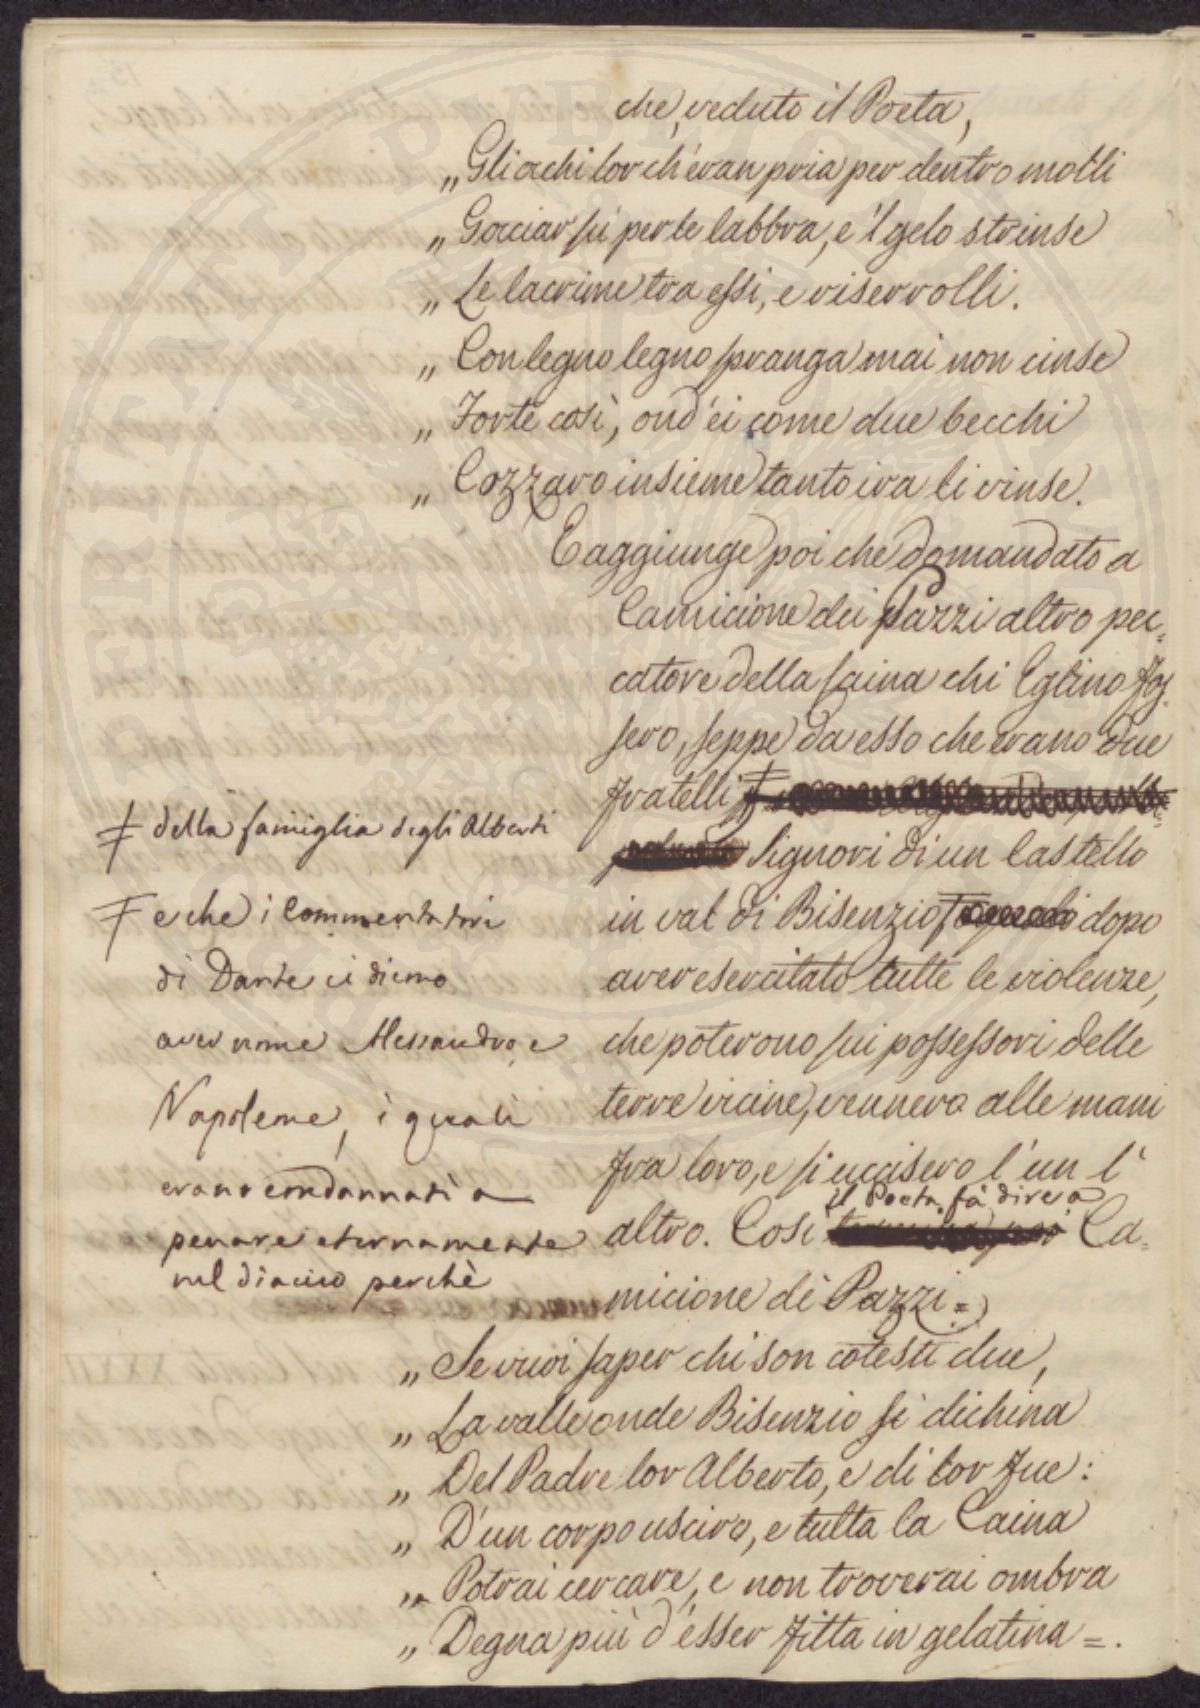 che, veduto il Poeta,
„ Gli occhi lor ch'eran pria per dentro molli
„ Gocciar sù per le labbra, e 'l gelo strinse
„ Le lacrime tra essi, e riserrolli.
„ Con legno legno spranga mai non cinse
„ Forte così, ond'ei come due becchi
„ Cozzaro insieme tanto ira li vinse.
E aggiunge poi che domandato a
Camicione dei Pazzi altro pec=
catore della Caina chi Eglino fos=
sero, seppe da esso che erano due
fratelli
‡ della famiglia degli Alberti
Signori di un Castello
in val di Bisenzio dopo
F e che i Commentatori
di Dante ci dicono
aver nome Alessandro, e
Napoleone, i quali
erano condannati a
penare eternamente
nel diaccio perchè
aver esercitato tutte le violenze,
che poterono sui possessori delle
terre vicine, vennero alle mani
fra loro, e si uccisero l'un l'
altro. Così il Poeta fà dire a Ca=
micione dè Pazzi =)
„ Se vuoi saper chi son cotesti due,
„ La valle onde Bisenzio si dichina
„ Del Padre lor Alberto, e di lor fue:
„ D'un corpo usciro, e tutta la Caina
„ Potrai cercare, e non troverai ombra
„ Degna più d'esser fitta in gelatina =.